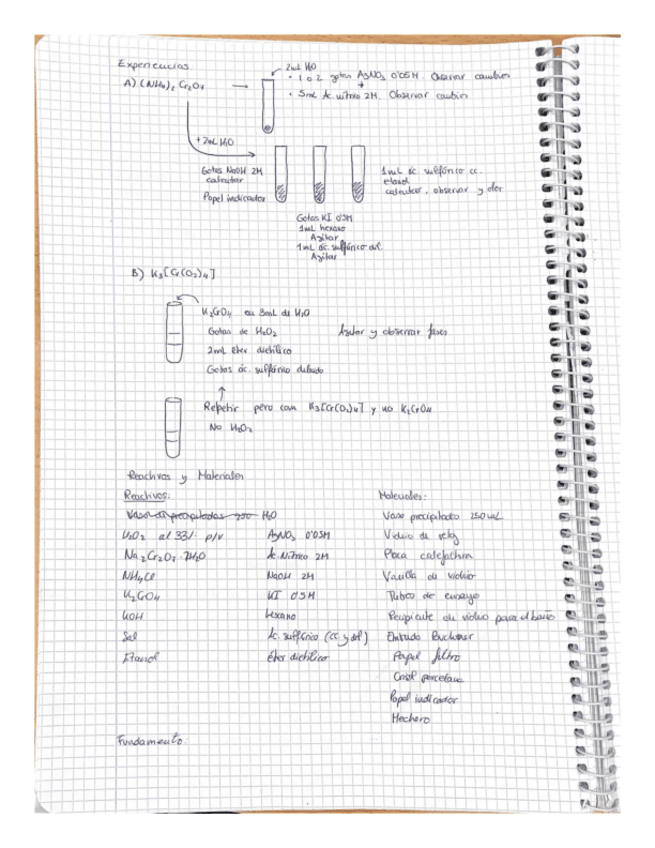 Experiencias
A) (NH4)2 Cr2O7
2mL H2O
• 1 o 2 gotas AgNO3 0'05M. Observar cambios
• 5mL Ác. nítrico 2M. Observar cambios
+2mL H2O
Gotas NaOH 2M
calentar
Papel indicador
1mL ác. sulfúrico cc.
etanol
calentar, observar y olor
Gotas KI 0'5M
1mL hexano
Agitar
1mL ác. sulfúrico dil
Agitar
B) K3[Cr(O2)4]
K2CrO4 en 3mL de H2O
Gotas de H2O2
Agitar y observar fases
2mL éter dietílico
Gotas ác. sulfúrico diluido
Repetir pero con K3[Cr(O2)4] y no K2CrO4
No H2O2
Reactivos y Materiales
Reactivos:
Materiales:
Vaso de precipitados 250 H2O
Vaso precipitado 250mL
H2O2 al 33% p/v
AgNO3 0'05M
Vidrio de reloj
Na2Cr2O7·2H2O
Ác. Nítrico 2M
Placa calefactora
NH4Cl
NaOH 2M
Varilla de vidrio
K2CrO4
KI 0'5M
Tubos de ensayo
KOH
hexano
Recipiente de vidrio para el baño
Sal
Ác. sulfúrico (cc. y dil)
Embudo Buchner
Etanol
éter dietílico
Papel filtro
Crisol porcelana
Papel indicador
Mechero
Fundamento: